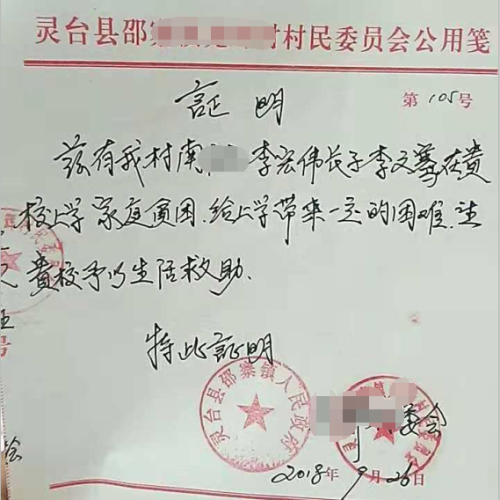 灵台县邵寨 村村民委员会公用笺
証明
第105号
兹有我村南 李宏伟长子李文 在贵
校上学家庭贫困.给上学带来一定的困难.
贵校予以生活救助.
特此証明
灵台县邵寨镇人民政府
委会
2018年9月26日